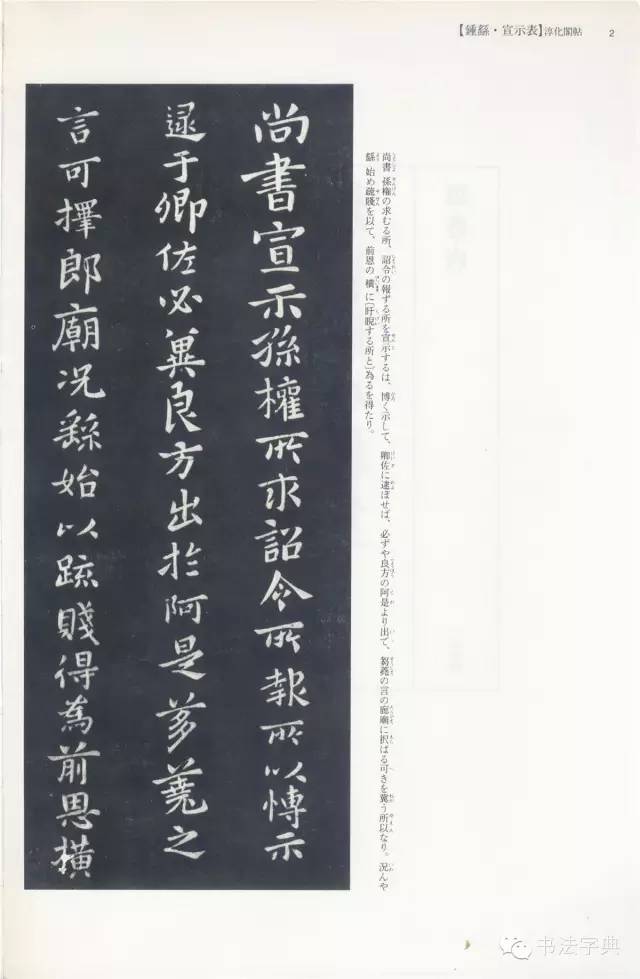 【鍾繇・宣示表】淳化閣帖 2
尚書宣示孫權所求詔令所報所以博示
逮于卿佐必冀良方出於阿是芻蕘之
言可擇郎廟況繇始以疏賤得為前恩橫
尚書 孫権の求むる所、詔令の報ずる所を宣示するは、博く示して、卿佐に逮ぼせば、必ずや良方の阿是より出で、芻蕘の言の廊廟に択ばる可きを冀う所以なり。況んや
繇 始め疏賤を以て、前恩の横に〔盱睨する所と〕為るを得たり。
书法字典